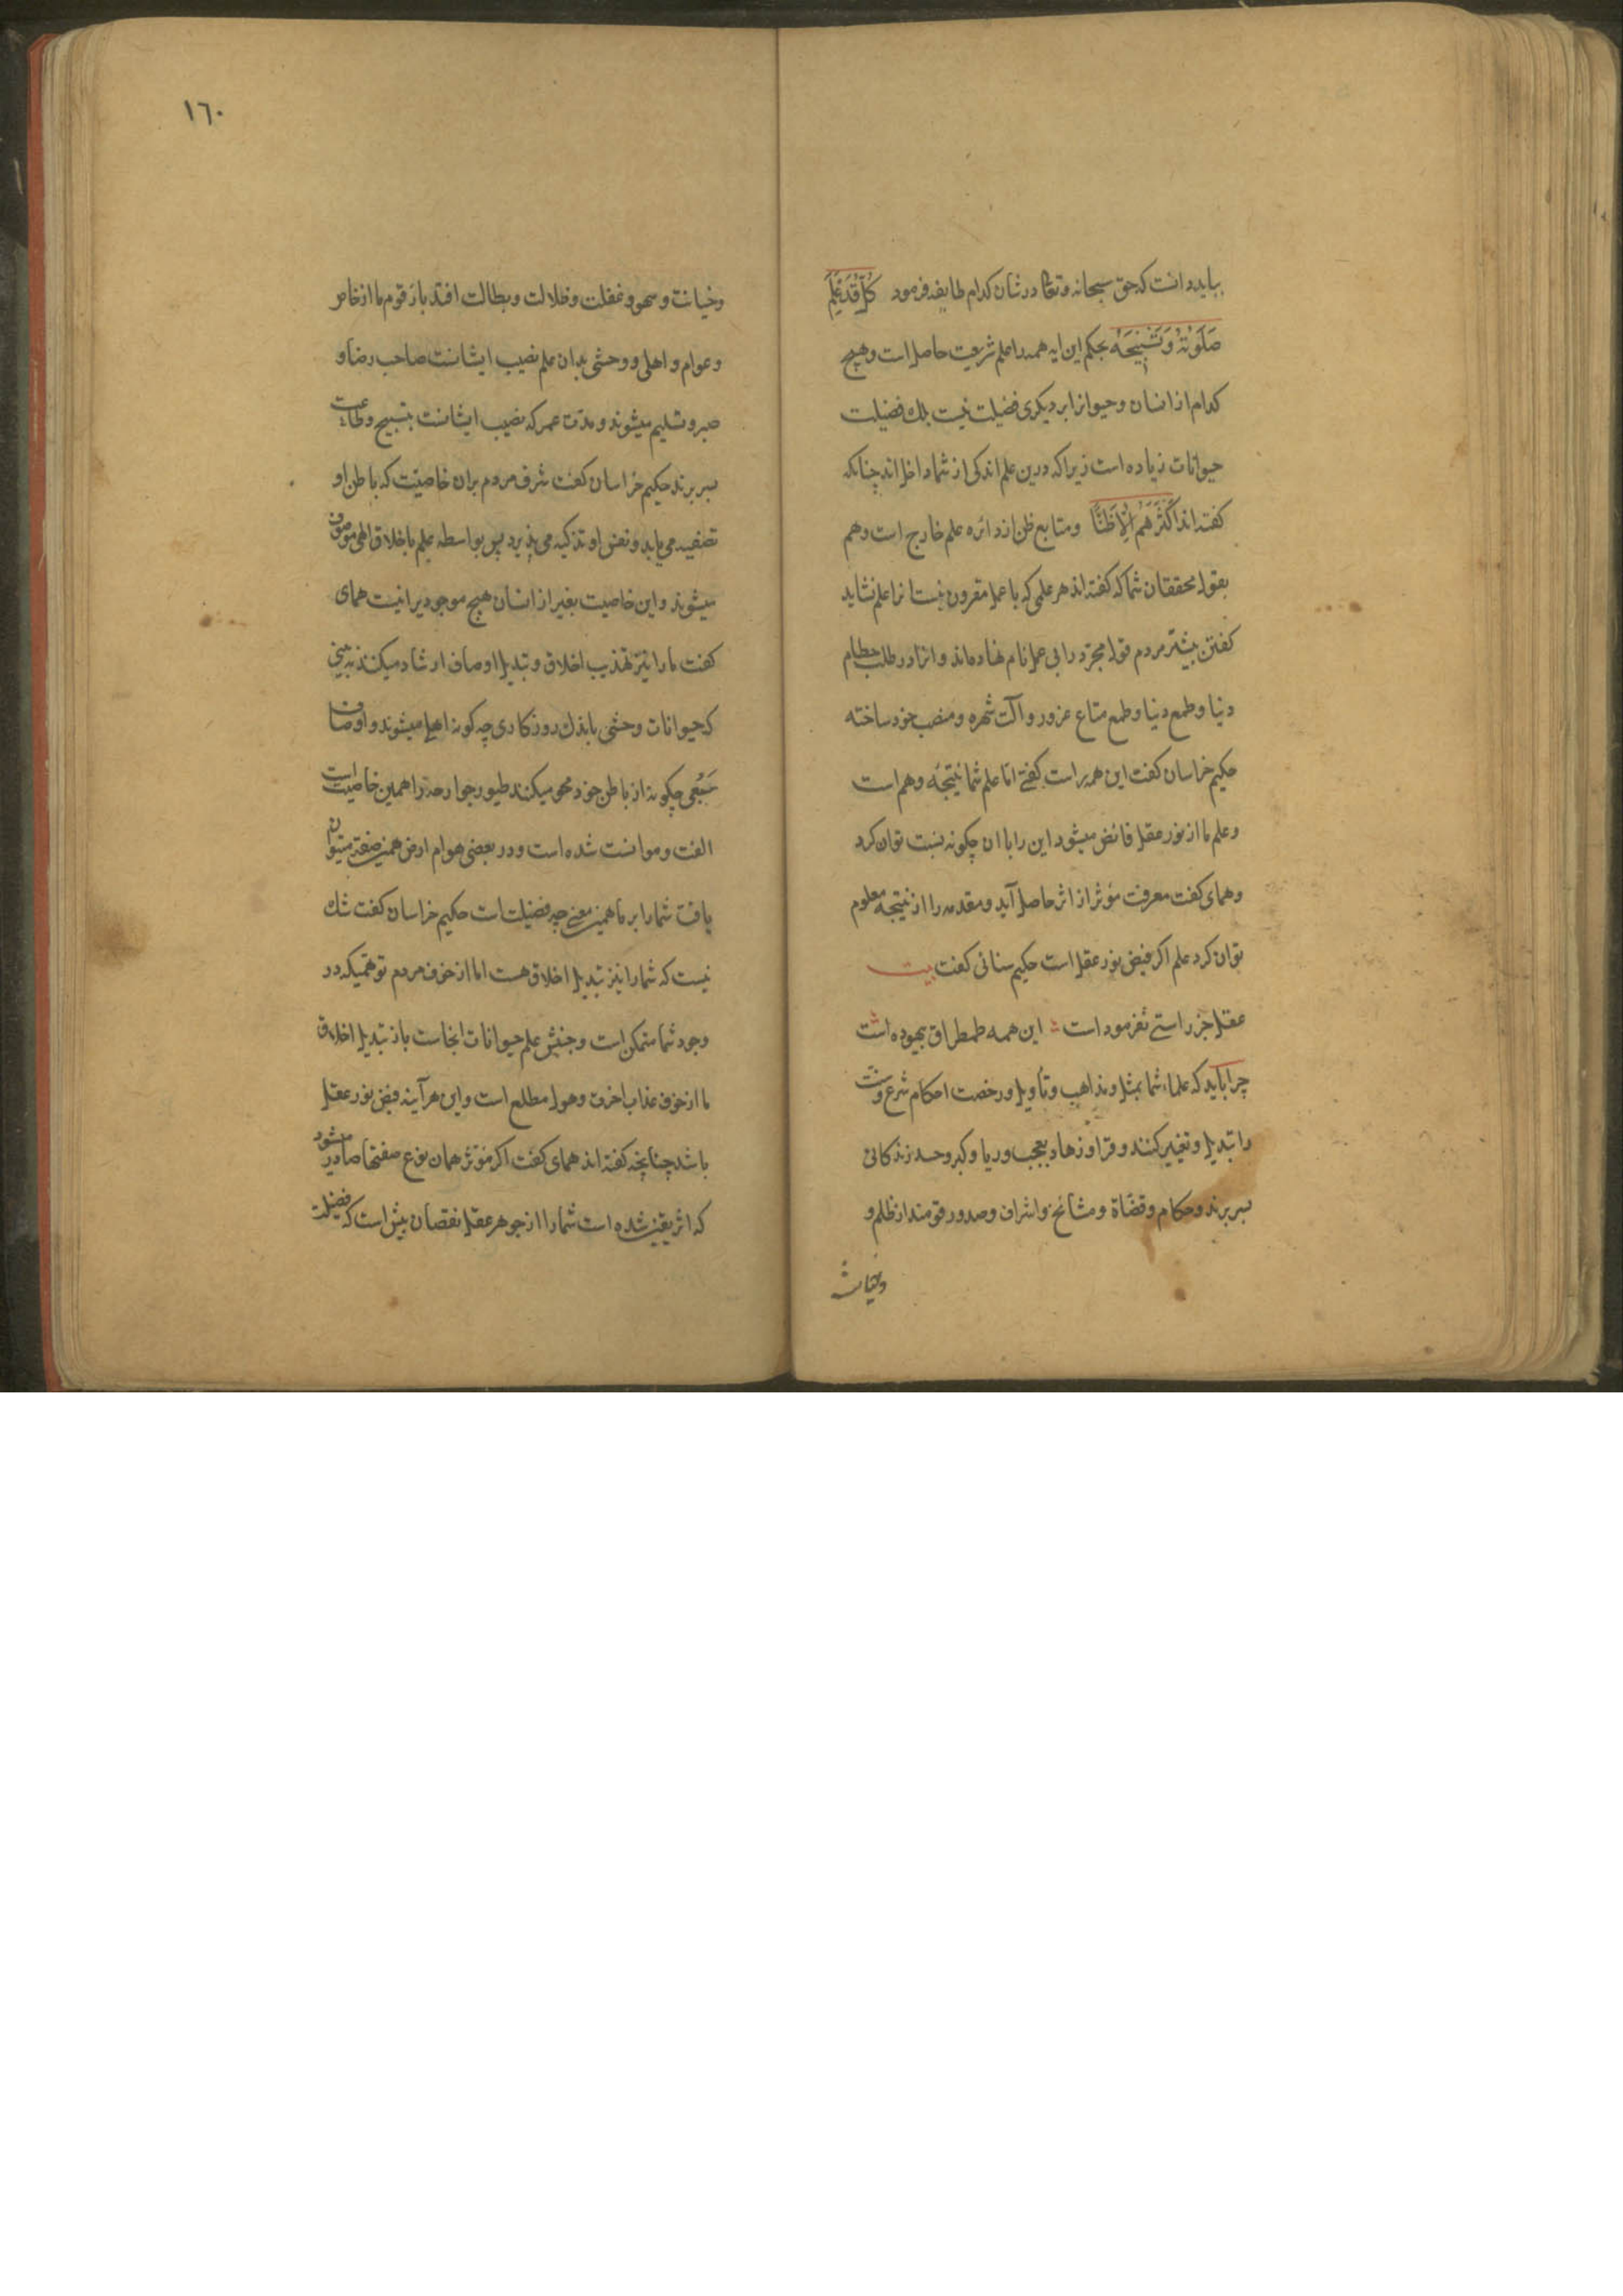 بباید دانست که حق سبحانه و تعالی در شان کدام طایفه فرمود کُلٌّ قَدْ عَلِمَ
صَلَوتَهُ وَتَسْبِیحَهُ بحکم این ایه همه را علم شریعت حاصل است و هیچ
کدام از انسان و حیوانرا بر دیکری فضیلت نیست بلک فضیلت
حیوانات زیاده است زیرا که درین علم اندکی از شما داخل اند چنانکه
کفته اند اَکْثَرَهُمْ اِلَّا ظَنًّا و متابع ظن از دائره علم خارج است و هم
بقول محققان شما که کفته اند هر علمی که با عمل مقرون نیست انرا علم نشاید
کفتن بیشتر مردم قول مجرد را بی عمل نام نهاده اند و انرا در طلب حطام
دنیا و طمع دنیا و طمع متاع غرور و آلت شهره و منصب خود ساخته
حکیم خراسان کفت این همه راست کفتی اما علم شما نتیجه وهم است
و علم ما از نور عقل فائض میشود این را با ان چکونه نسبت توان کرد
و همای کفت معرفت مؤثر از اثر حاصل آید و مقدمه را از نتیجه معلوم
توان کرد علم اکر فیض نور عقل است حکیم سنائی کفت بیت
عقل جز راستی نفرمود است این همه طمطراق بیهوده است
چرا باید که علماء شما بمثل و مذاهب و تأویل و رخصت احکام شرع و سنت
را تبدیل و تغییر کنند و قرا و زهاد بعجب و ریا و کبر و حسد زندکانی
بسر برند و حکام و قضاة و مشائخ و اشراف و صدور قومند از ظلم و
وخیانت
١٦٠
وخیانت و سهو و غفلت و ظلالت و بطالت افتد باز قوم ما از خاص
و عوام و اهلی و وحشی بدان علم نصیب ایشانست صاحب رضا و
صبر و تسلیم میشوند و مدت عمر که نصیب ایشانست بتسبیح و طاعت
بسر برند حکیم خراسان کفت شرف مردم بران خاصیت که باطن او
تصفیه می یابد و نفس او تزکیه می پذیرد پس بواسطه علم باخلاق الهی موصوف
میشوند و این خاصیت بغیر از انسان هیچ موجودیرا نیست همای
کفت ما را نیز تهذیب اخلاق و تبدیل اوصاف ارشاد میکنند نه بینی
که حیوانات وحشی باندک روزکاری چه کونه اهلی میشوند و اوصاف
سَبُعی چکونه از باطن خود محو میکنند طیور جوارحه را همین خاصیت است
الفت و موانست شده است و در بعضی هوام ارض همین صفت میتوان
یافت شما را بر ما همین معنی چه فضیلت است حکیم خراسان کفت شک
نیست که شما را نیز تبدیل اخلاق هست اما از خوف مردم توهمیکه در
وجود شما متمکن است و جنبش علم حیوانات انجاست باز تبدیل اخلاق
ما از خوف عذاب اخرت و هول مطلع است و این هر آینه فیض نور عقل
باشد چنانچه کفته اند همای کفت اکر مؤثر همان نوع صفتها صادر میشود
که اثر یقین شده است شما را از جوهر عقل نقصان بیش است که فضیلت